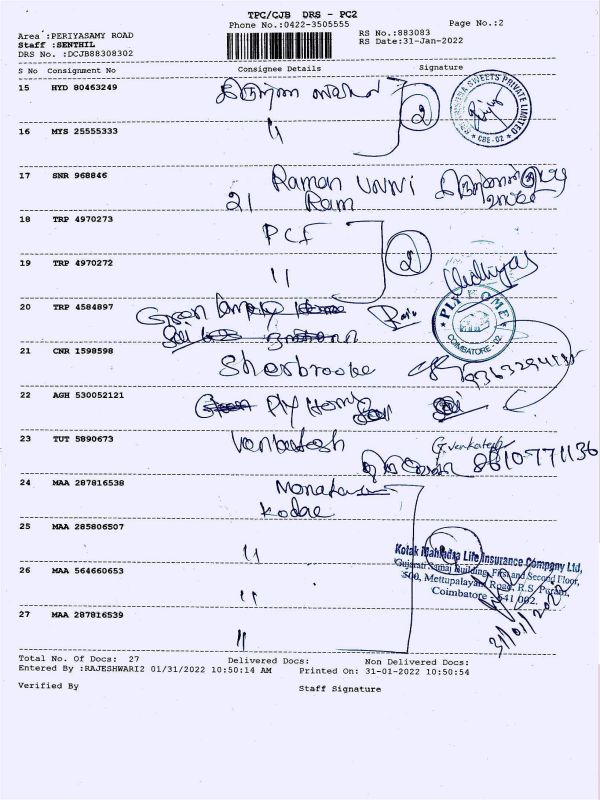 TPC/CJB DRS - PC2
Phone No.:0422-3505555
Page No.:2
Area :PERIYASAMY ROAD
RS No.:883083
Staff :SENTHIL
RS Date:31-Jan-2022
DRS No. :DCJB88308302
S No Consignment No Consignee Details Signature
15 HYD 80463249
2
SWEETS PRIVATE LIMITED
CBE-02
16 MYS 25555333 "
17 SNR 968846 Raman Unni
21 Ram
18 TRP 4970273 PCF
2
19 TRP 4970272 "
20 TRP 4584897 Green
PLY HOME
COIMBATORE-02
21 CNR 1598598 Sherbrooke
22 AGH 530052121 Ply Home
23 TUT 5890673 Venkatesh
G. Venkatesh
8610771136
24 MAA 287816538
Kodac
25 MAA 285806507 "
Kotak Mahindra Life Insurance Company Ltd,
Gujarati Samaj Building, First and Second Floor,
500, Mettupalayam Road, R.S. Puram,
Coimbatore - 641 002.
26 MAA 564660653 "
27 MAA 287816539 "
31/01/2022
Total No. Of Docs: 27 Delivered Docs: Non Delivered Docs:
Entered By :RAJESHWARI2 01/31/2022 10:50:14 AM Printed On: 31-01-2022 10:50:54
Verified By Staff Signature